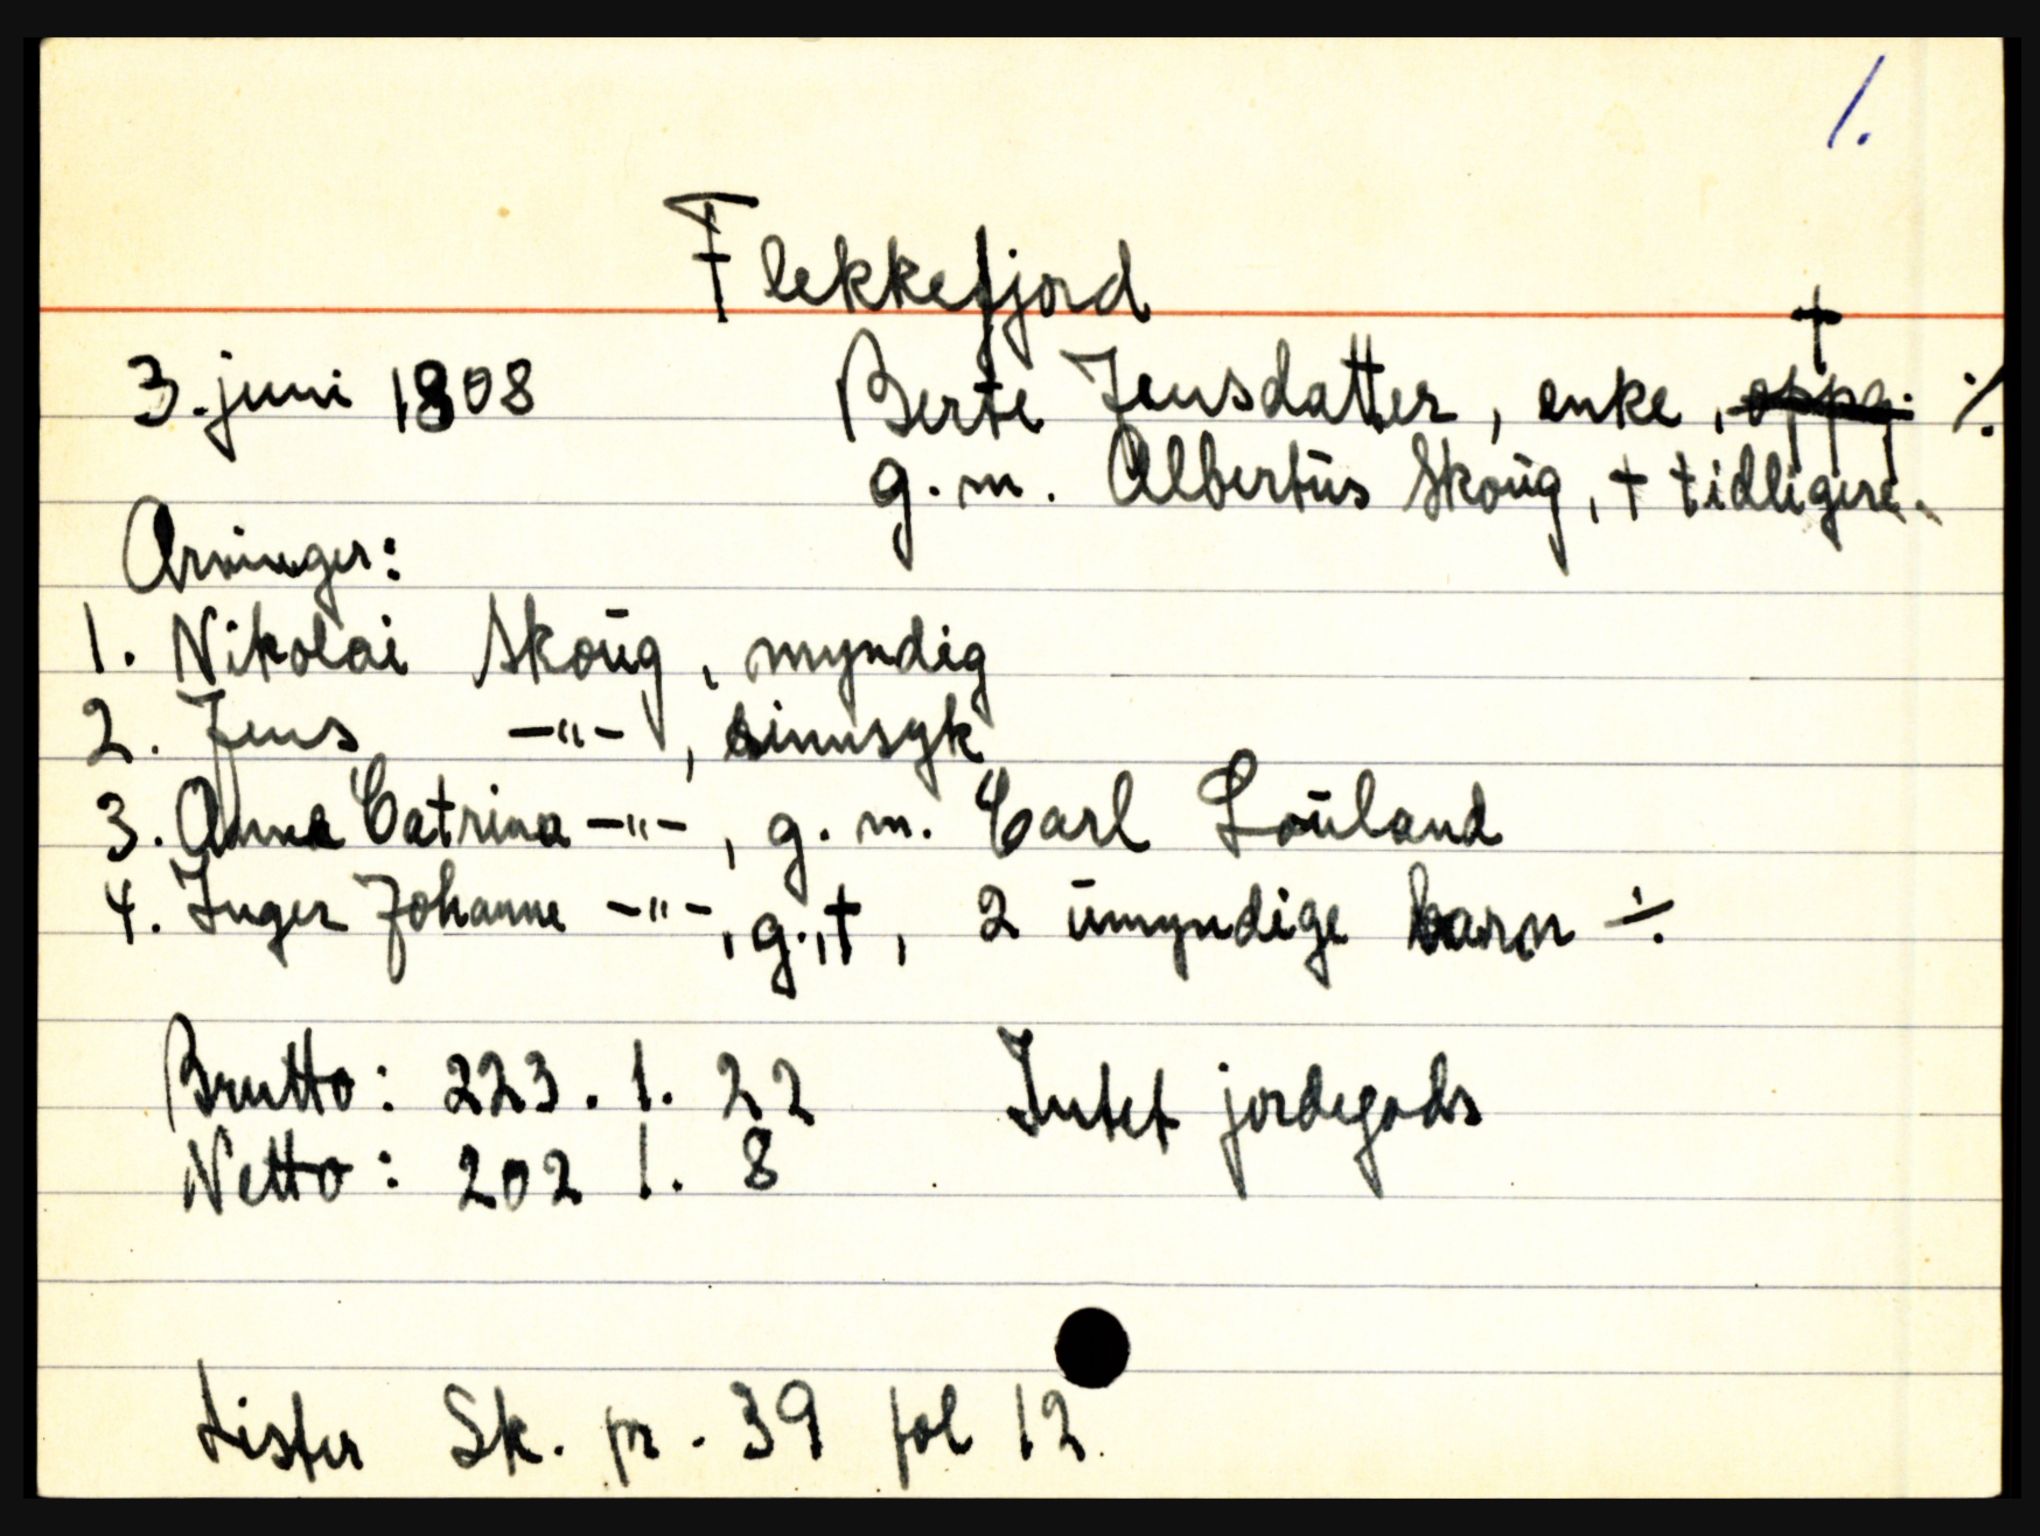 1.
Flekkefjord
3. juni 1808 Berte Jensdatter, enke, † ·/.
g. m. Albertus Skoug, † tidligere.
Arvinger:
1. Nikolai Skoug, myndig
2. Jens -"-, sinnsyk
3. Anna Catrina -"-, g. m. Carl Louland
4. Inger Johanne -"-, g., †, 2 umyndige barn ÷
Brutto: 223. 1. 22 Intet jordegods
Netto: 202 1. 8
Lister Sk. pr. 39 fol 12.